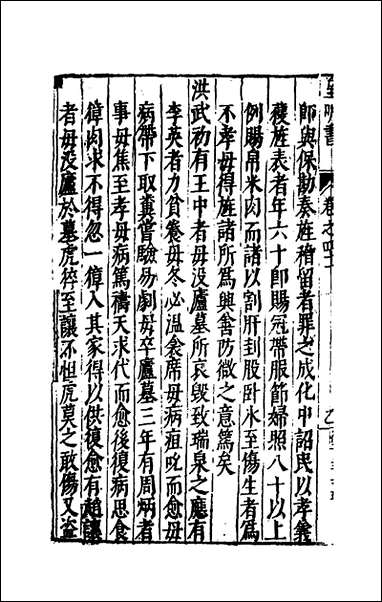 師與保勘奏旌稽留者罪之成化中詔民以孝義
獲旌表者年六十卽賜冠帶服節婦照八十以上
例賜帛米肉而諸以割肝刲股臥氷至傷生者爲
不孝毋得旌諸所爲興善防微之意篤矣
洪武初有王中者毋没廬墓所哀毀致瑞泉之應有
李英者力貧養毋冬必温衾席毋病疽吮而愈毋
病帶下取糞嘗驗易劇毋卒廬墓三年有周炳者
事毋焦至孝毋病篤禱天求代而愈後復病思食
獐肉求不得忽一獐入其家得以供復愈有趙讓
者毋没廬於墓虎猝至讓不怛虎莫之敢傷又盗